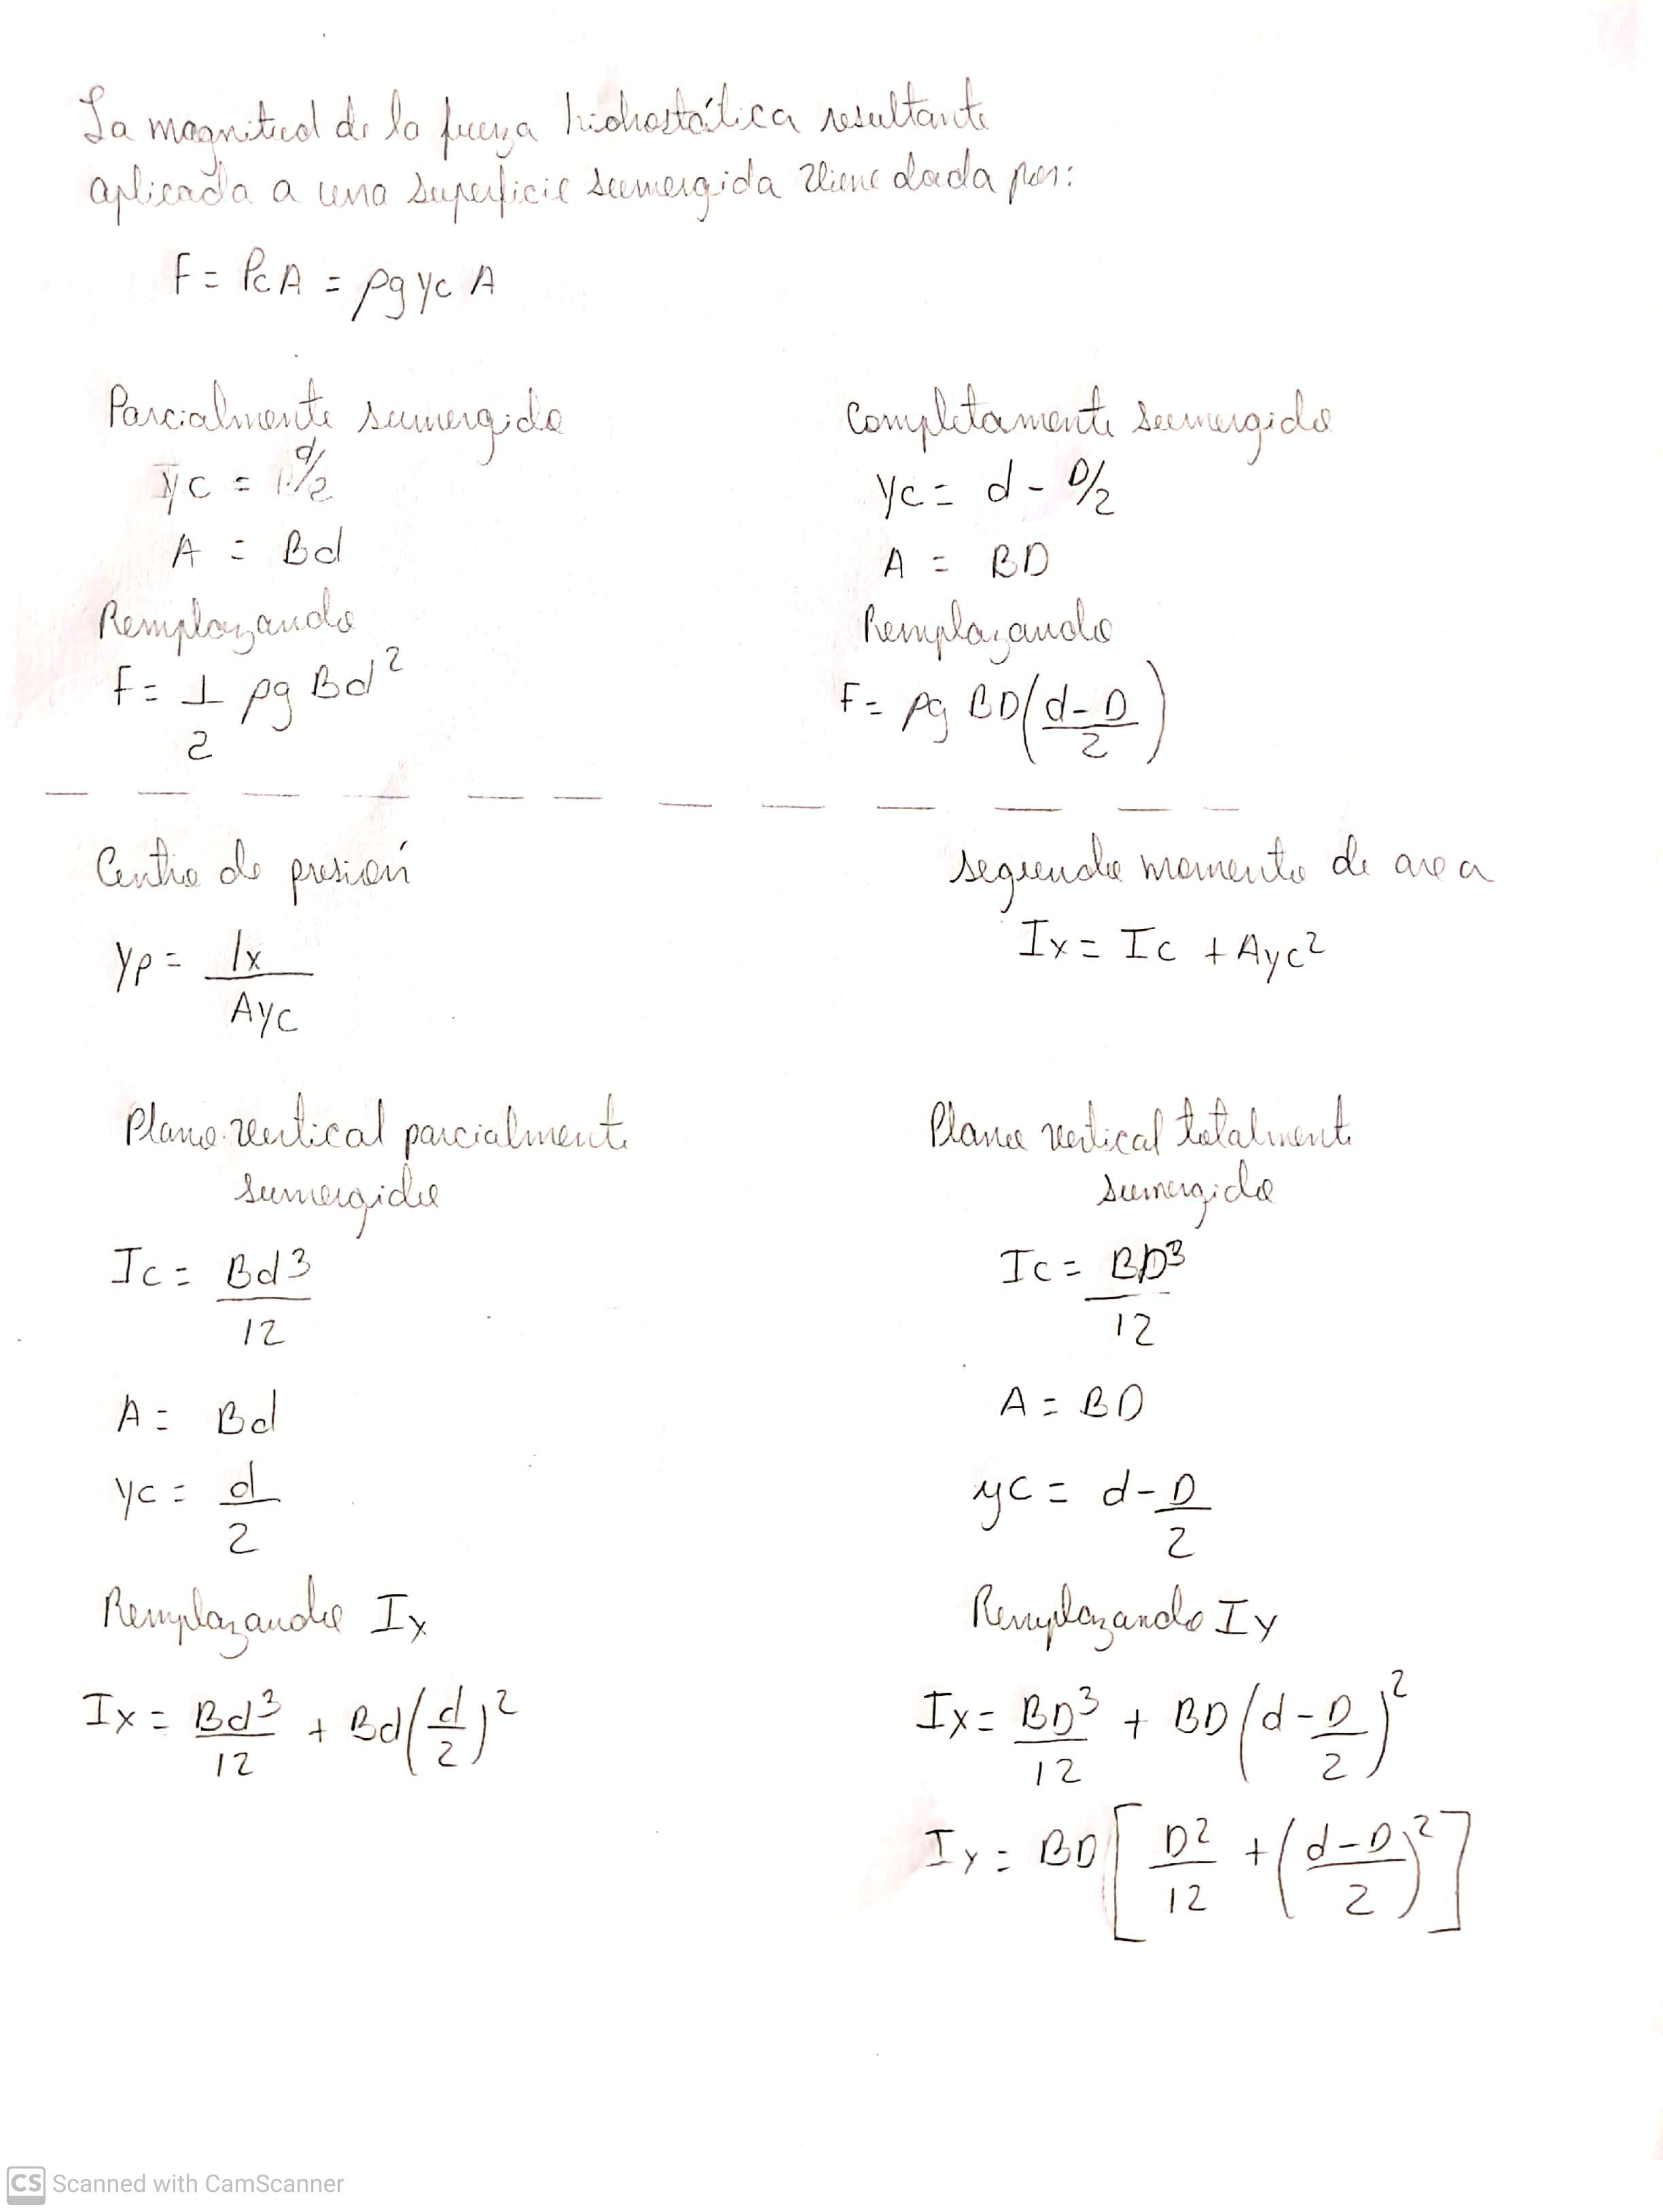 La magnitud de la fuerza hidrostática resultante
aplicada a una superficie sumergida viene dada por:
F = PcA = ρg yc A
Parcialmente sumergido
yc = d/2
A = Bd
Remplazando
F = 1/2 ρg Bd²
Completamente sumergido
yc = d - D/2
A = BD
Remplazando
F = ρg BD(d - D/2)
Centro de presión
yp = Ix/Ayc
segundo momento de area
Ix = Ic + Ayc²
Plano vertical parcialmente
sumergido
Ic = Bd³/12
A = Bd
yc = d/2
Remplazando Ix
Ix = Bd³/12 + Bd(d/2)²
Plano vertical totalment
sumergido
Ic = BD³/12
A = BD
yc = d - D/2
Remplazando Ix
Ix = BD³/12 + BD(d - D/2)²
Ix = BD[D²/12 + (d - D/2)²]
CS Scanned with CamScanner